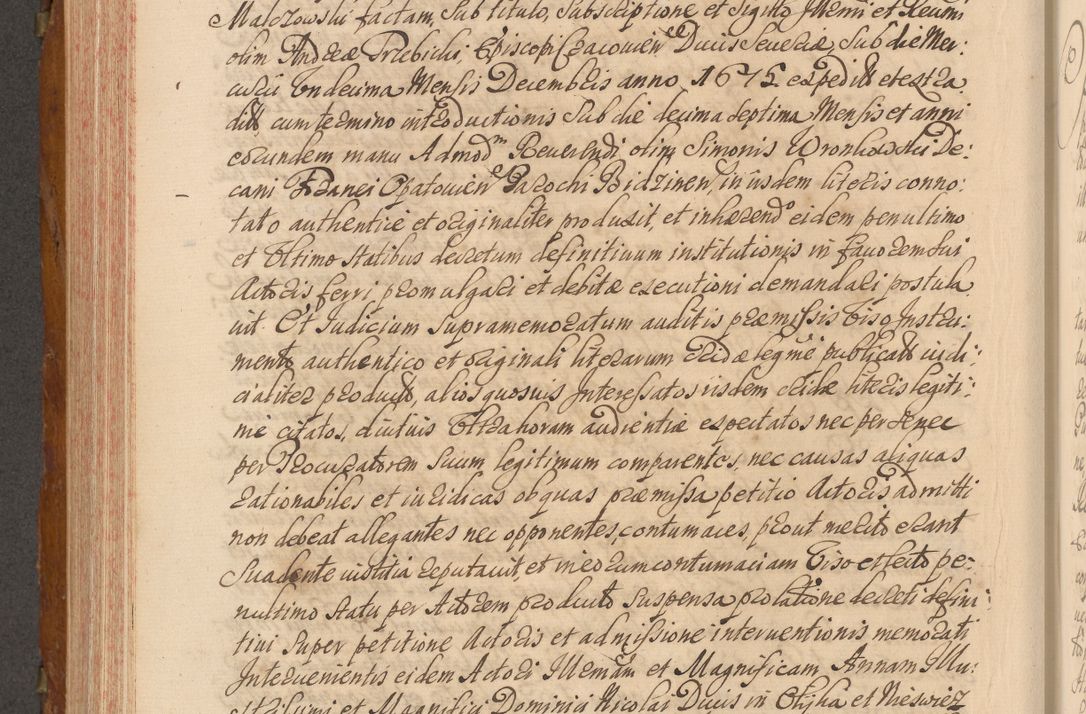 Malczowski factam, Sub titulo, Subscriptione et Sigillo Illmi et Revmi
olim Andreæ Trzebicki, Episcopi Cracovien Ducis Severiæ, Sub die Mer:
curii Undecima Mensis Decembris anno 1675 expedit et extra
dit cum termino introductionis Sub die decima Septima Mensis et anni
eorundem manu Admod Reverendi olim Simonis Wronkowski De:
cani Opatovien Parochi Bidzinen, in iisdem literis conno:
tato authenticè et originaliter produxit, et inhærend eidem penultimo
et Ultimo Statibus decretum definitivum institutionis in favorem Sui
Actoris ferri promulgari et debitæ executioni demandari postula
vit. Et Judicium Supramemoratum auditis præmissis Viso Instru:
mento authentico et originali literarum Cridæ legmè publicat iudi:
cialiter producto, alios quosvis Interessatos iisdem Cridæ literis legiti:
mè citatos, diutius Ultra horam audientiæ expectatos nec per Se nec
per Procuratorem Suum legitimum comparentes, nec causas aliquas
rationabiles et iuridicas ob quas præmissa petitio Actoris admitti
non debeat allegantes nec opponentes, contumaces, prout meritò erant
Suadente iustitia reputavit, et in eorum contumaciam Viso effecto pe:
nultimo Statu per Actorem producto Suspensa prolatione decreti defini:
tivi Super petitione Actoris et admissione interventionis memorati
Intervenientis eidem Actori Illmam et Magnificam Annam Illu:
strissimi et Magnifici Dominici Nicolai Ducis in Olyka et Nieswiez